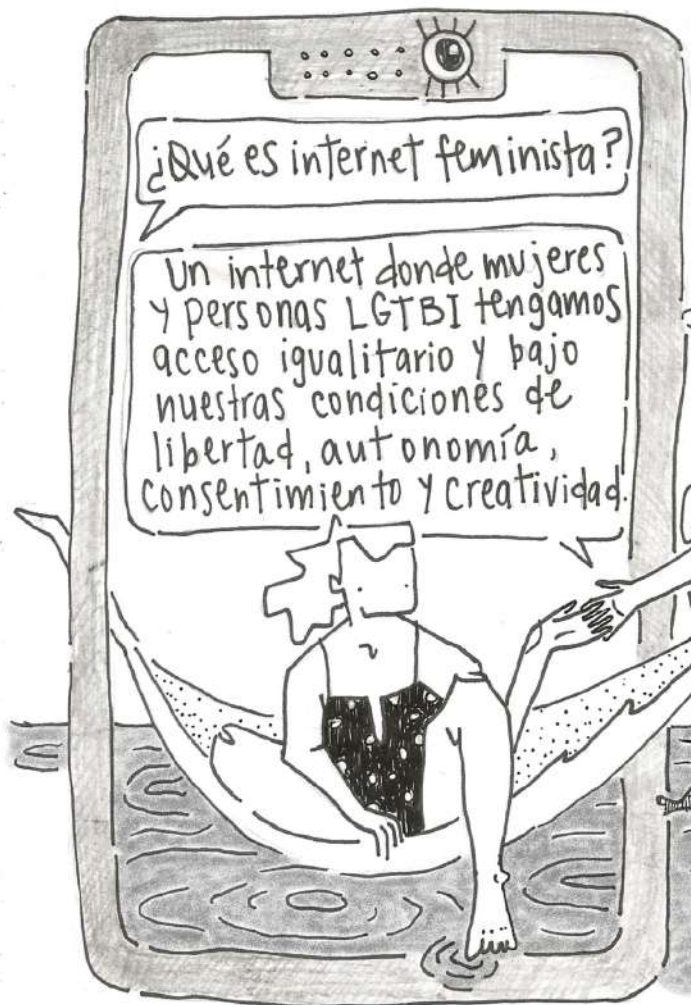 ¿Qué es internet feminista?
Un internet donde mujeres
y personas LGTBI tengamos
acceso igualitario y bajo
nuestras condiciones de
libertad, autonomía,
consentimiento y creatividad.